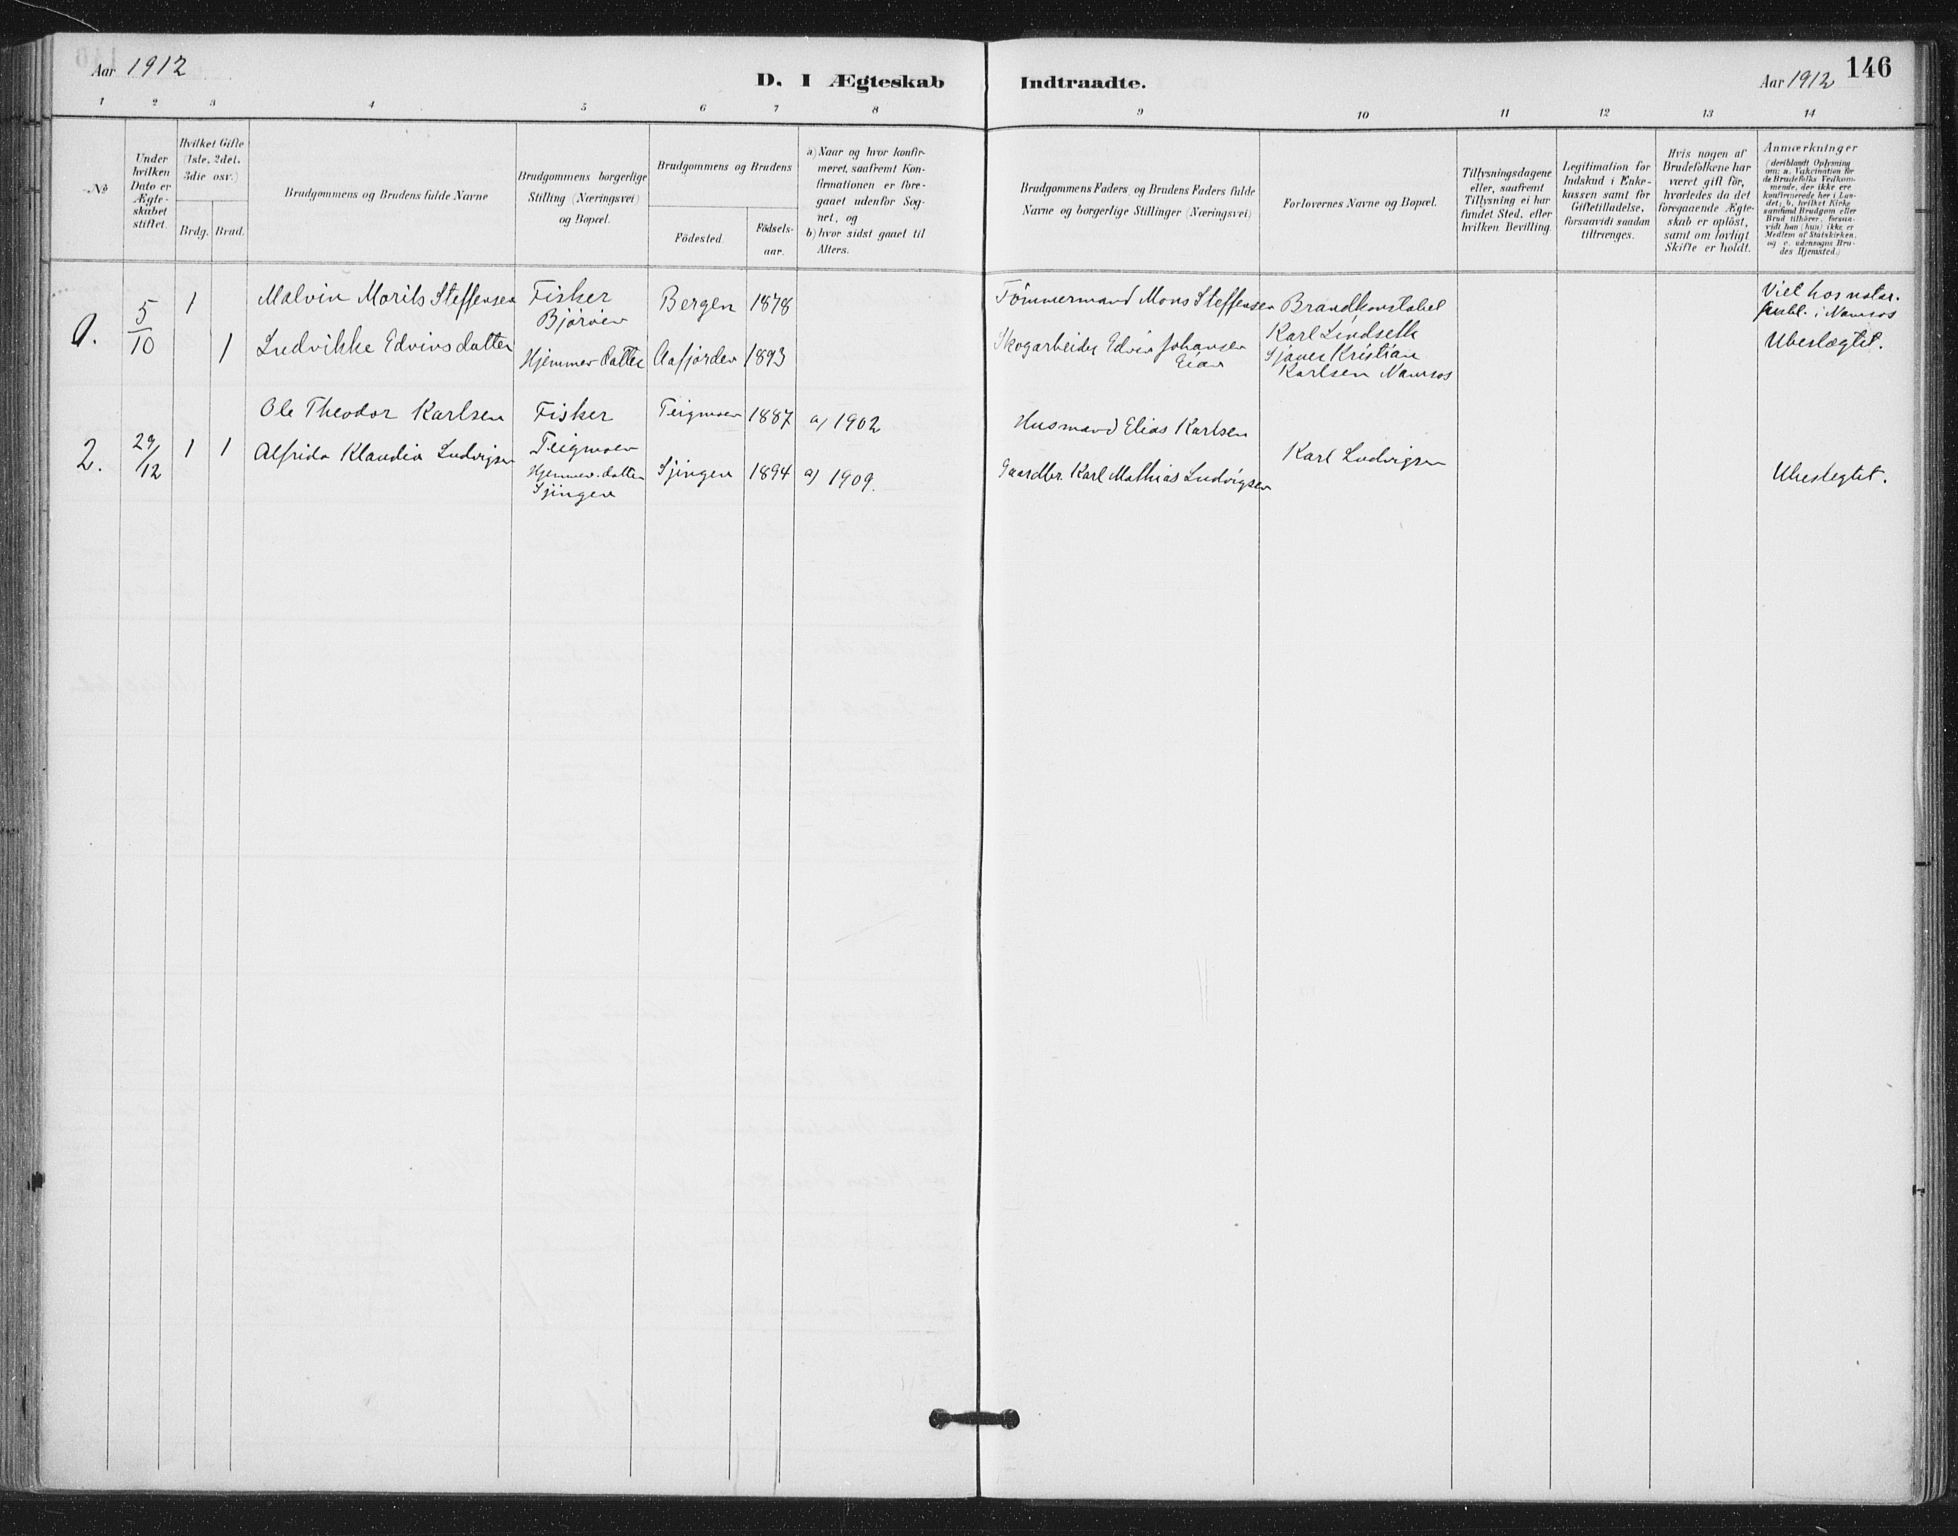 Aar 1912
D. I Ægteskab Indtraadte.
Aar 1912 146
1 2 3 4 5 6 7 8 9 10 11 12 13 14
No
Under
hvilken
Dato er
Ægte-
skabet
stiftet.
Hvilket Gifte
(1ste, 2det,
3die osv.)
Brdg. Brud.
Brudgommens og Brudens fulde Navne
Brudgommens borgerlige
Stilling (Næringsvei)
og Bopæl.
Brudgommens og Brudens
Födested.
Födsels-
aar.
a) Naar og hvor konfir-
meret, saafremt Kon-
firmationen er fore-
gaaet udenfor Sog-
net, og
b) hvor sidst gaaet til
Alters.
Brudgommens Faders og Brudens Faders fulde
Navne og borgerlige Stillinger (Næringsvei)
Forlovernes Navne og Bopæl.
Tillysningsdagene
eller, saafremt
Tillysning ei har
fundet Sted, efter
hvilken Bevilling.
Legitimation for
Indskud i Enke-
kassen samt for
Giftetilladelse,
forsaavidt saadan
tiltrænges.
Hvis nogen af
Brudefolkene har
været gift för,
hvorledes da det
foregaaende Ægte-
skab er oplöst,
samt om lovligt
Skifte er holdt.
Anmærkninger
(deriblandt Oplysning
om: a. Vakcination for
de Brudefolks Vedkom-
mende, der ikke ere
konfirmerede her i Lan-
det; b. hvilket Kirke-
samfund Brudgom eller
Brud tilhörer, forsaa-
vidt han (hun) ikke er
Medlem af Statskirken,
og c. udensogns Bru-
des Hjemsted.)
1. 5/10 1 Malvin Morits Steffensen Fisker Bergen 1878 Tömmermand Mons Steffensen Brandkonstabel Viet hos notar.
Bjørøen Karl Lindseth publ. i Namsos
1 Ludvikke Edvinsdatter Hjemmev. datter Aafjorden 1893 Skogarbeider Edvin Johansen Sjauer Kristian Ubeslægtet.
Karlsen Namsos
Ole Theodor Karlsen Fisker Teigmoen 1887 a) 1902 Husmand Elias Karlsen
2. 29/12 1 1 Teigmoen
Alfrida Klaudia Ludvigsen Hjemmev. datter Sjingen 1894 a) 1909. Gaardbr. Karl Mathias Ludvigsen Karl Ludvigsen Ubeslegtet.
Sjingen